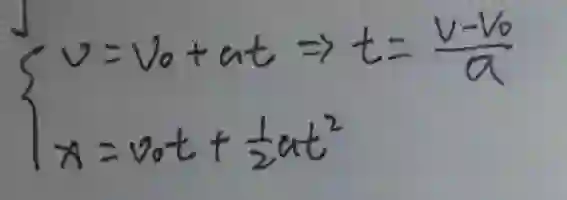 v = v₀ + at ⇒ t = (v - v₀)/a
x = v₀t + ½at²